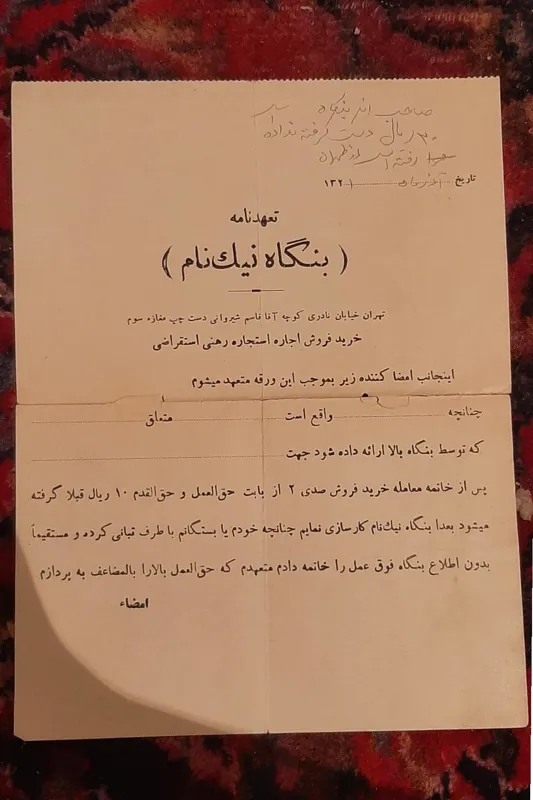 صاحب این بنگاه
۳۰ ریال دست گرفته نداده
رفته از طهران
تاریخ آذرماه ۱۳۲۱
تعهدنامه
( بنگاه نیك‌نام )
تهران خیابان نادری کوچه آقا قاسم شیروانی دست چپ مغازه سوم
خرید فروش اجاره استجاره رهنی استقراضی
اینجانب امضا کننده زیر بموجب این ورقه متعهد میشوم
چنانچه واقع است متعلق
که توسط بنگاه بالا ارائه داده شود جهت
پس از خاتمه معامله خرید فروش صدی ۲ از بابت حق‌العمل و حق‌القدم ۱۰ ریال قبلا گرفته
میشود بعدا بنگاه نیك‌نام کارسازی نمایم چنانچه خودم یا بستگانم با طرف تبانی کرده و مستقیماً
بدون اطلاع بنگاه فوق عمل را خاتمه دادم متعهدم که حق‌العمل بالارا بالمضاعف به پردازم
امضاء